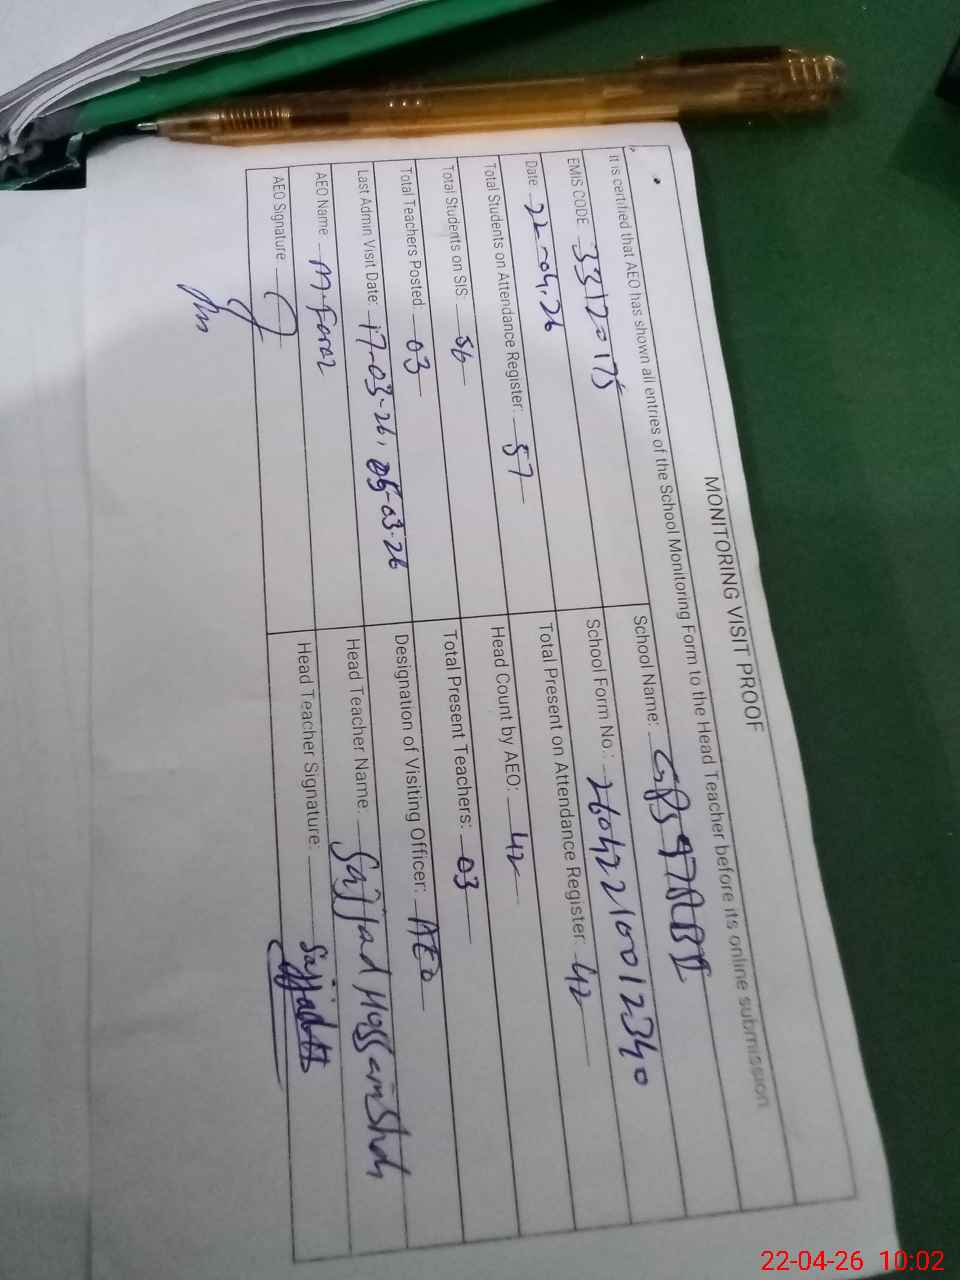 MONITORING VISIT PROOF
It is certified that AEO has shown all entries of the School Monitoring Form to the Head Teacher before its online submission
EMIS CODE: 33120175 School Name: GPS 97 RB II
Date 22-04-26 School Form No.: 26042210012340
Total Students on Attendance Register: 57 Total Present on Attendance Register: 42
Total Students on SIS: 56 Head Count by AEO: 42
Total Teachers Posted: 03 Total Present Teachers: 03
Last Admin Visit Date: 17-03-26, 05-03-26 Designation of Visiting Officer: AEO
AEO Name M. Faraz Head Teacher Name: Sajjad Hussain
AEO Signature Head Teacher Signature: Sajjad
22-04-26 10:02